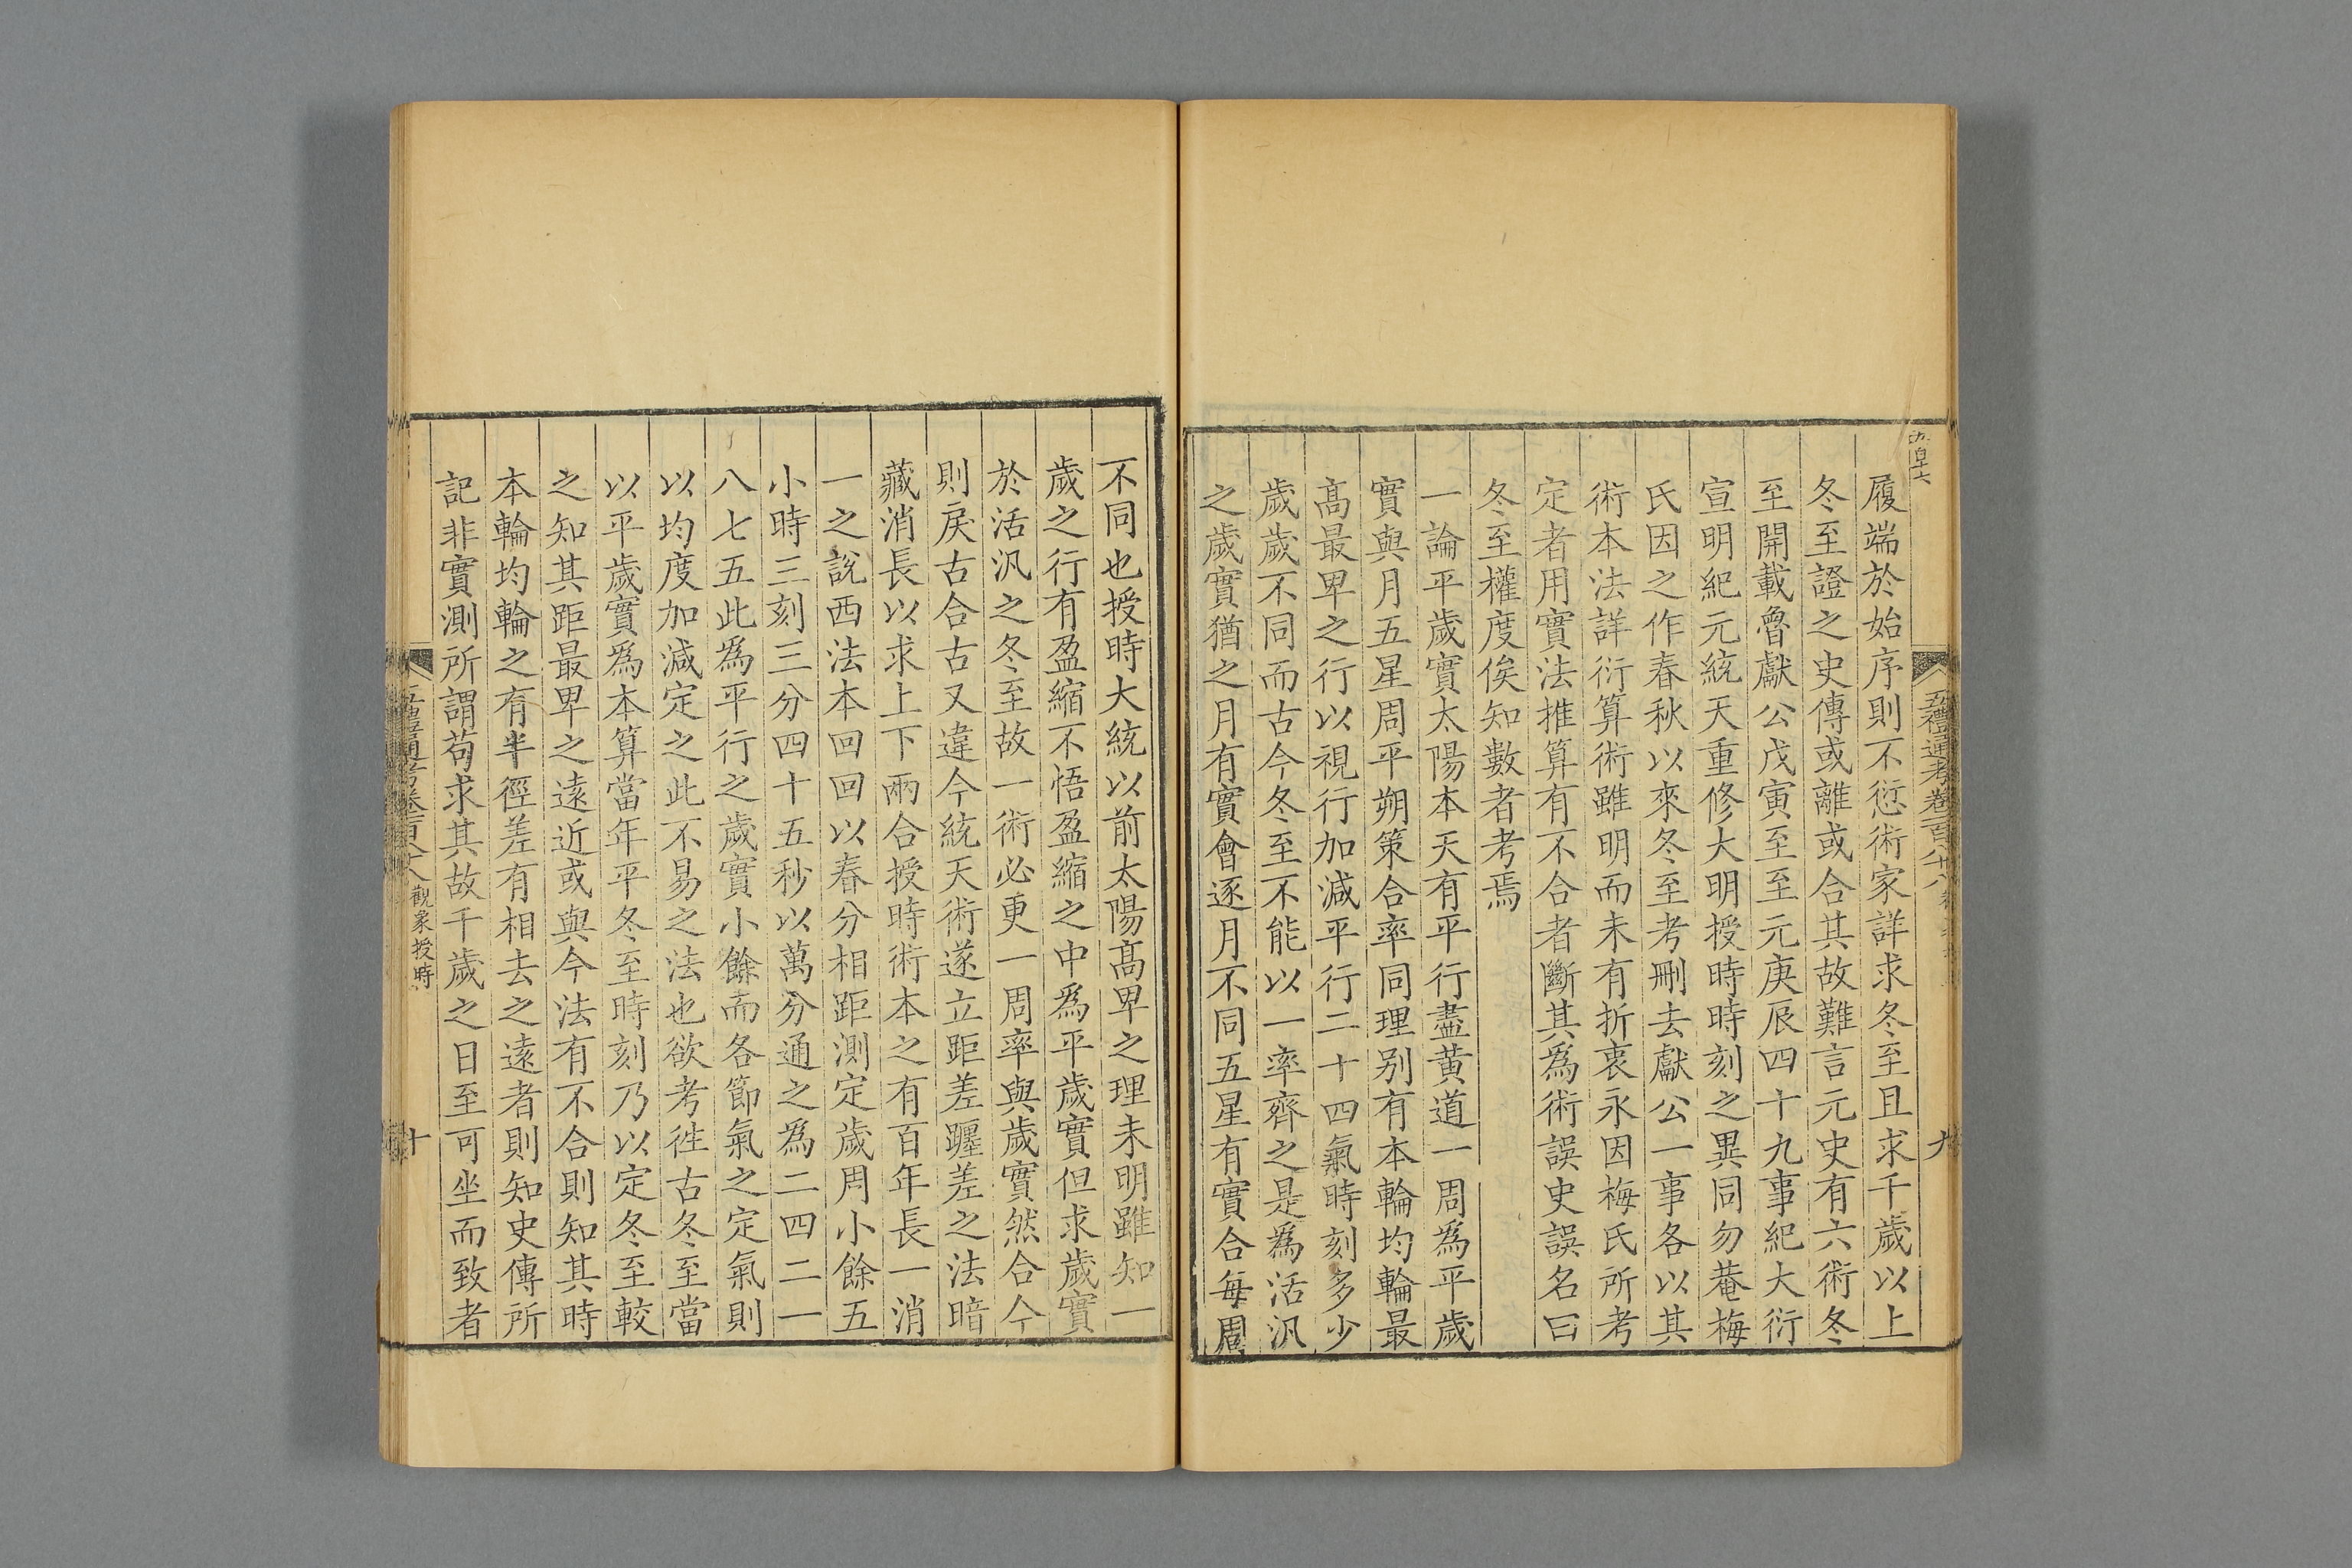 履端於始序則不愆術家詳求冬至且求千歲以上
冬至證之史傳或離或合其故難言元史有六術冬
至開載魯獻公戊寅至至元庚辰四十九事紀大衍
宣明紀元統天重修大明授時時刻之異同勿菴梅
氏因之作春秋以來冬至考刪去獻公一事各以其
術本法詳衍算術雖明而未有折衷永因梅氏所考
定者用實法推算有不合者斷其爲術誤史誤名曰
冬至權度俟知數者考焉
一論平歲實太陽本天有平行盡黄道一周爲平歲
實與月五星周平朔策合率同理别有本輪均輪最
高最卑之行以視行加減平行二十四氣時刻多少
歲歲不同而古今冬至不能以一率齊之是爲活汎
之歲實猶之月有實會逐月不同五星有實合每周
不同也授時大統以前太陽高卑之理未明雖知一
歲之行有盈縮不悟盈縮之中爲平歲實但求歲實
於活汎之冬至故一術必更一周率與歲實然合今
則戾古合古又違今統天術遂立距差躔差之法暗
藏消長以求上下兩合授時術本之有百年長一消
一之說西法本回回以春分相距測定歲周小餘五
小時三刻三分四十五秒以萬分通之爲二四二一
八七五此爲平行之歲實小餘而各節氣之定氣則
以均度加減定之此不易之法也欲考徃古冬至當
以平歲實爲本算當年平冬至時刻乃以定冬至較
之知其距最卑之遠近或與今法有不合則知其時
本輪均輪之有半徑差有相去之遠者則知史傳所
記非實測所謂苟求其故千歲之日至可坐而致者
五禮通考卷一百八十八
觀象授時
九
十